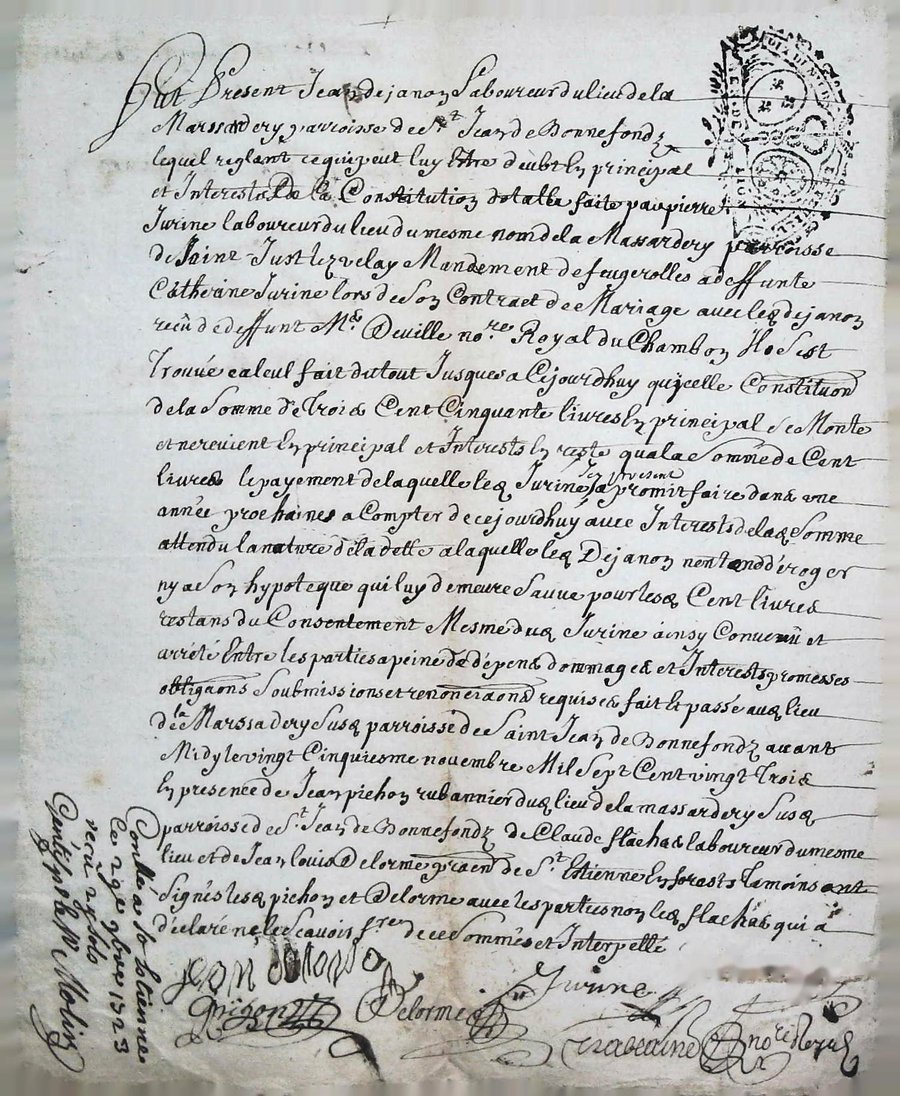 Fut Present Jean dejanon Laboureur du lieu de la
Marssadery parroisse de St Jean de Bonnefondz
lequel reglant ce qui peut luy Estre deubt En principal
et Interests De la Constitution dotalle faite par pierre
Jurine laboureur du lieu du mesme nom de la Massardery parroisse
de Saint Just lez velay Mandement de feugerolles a deffunte
Catherine Jurine lors de son Contract de Mariage avec led dejanon
reçu de deffunt Me Deville nore Royal du Chambon Il S'est
Trouvé calcul fait du tout Jusques a Cejourdhuy qu'jcelle Constituon
de la Somme de Trois Cent Cinquante livres En principal se Monte
et ne revient En principal et Interests En reste qu'a la Somme de Cent
livres le payement de laquelle led Jurine Icy present a promit faire dans une
année prochaines a Compter de cejourdhuy avec Interests de lad Somme
attendu la nature de la dette a laquelle led Dejanon nentand déroger
ny a Son hypoteque qui luy demeure Sauve pour lesd Cent livres
restans du Consentement Mesme dud Jurine ainsy Convenü et
arrété Entre les parties a peine de dépens dommages et Interests promesses
obligaons Soubmissions et renonciaons requises fait et passé aud lieu
de la Marssadery Susd parroisse de Saint Jean de Bonnefondz avant
Midy le vingt Cinquiesme novembre Mil Sept Cent vingt Trois
En presence de Jean pichon rubannier dud lieu de la massardery Susd
parroisse de St Jean de Bonnefondz de Claude flachas laboureur du mesme
lieu et de Jean louis Delorme praen de St Estienne En forests Tamoins ant
Signés lesd pichon et Delorme avec les parties non led flachas qui a
déclaré ne le Scavoir fre de ce Sommés et Interpellé
Jurine
Delorme
nore Royal
Conlle a St Estienne
le 29e 9bre 1723